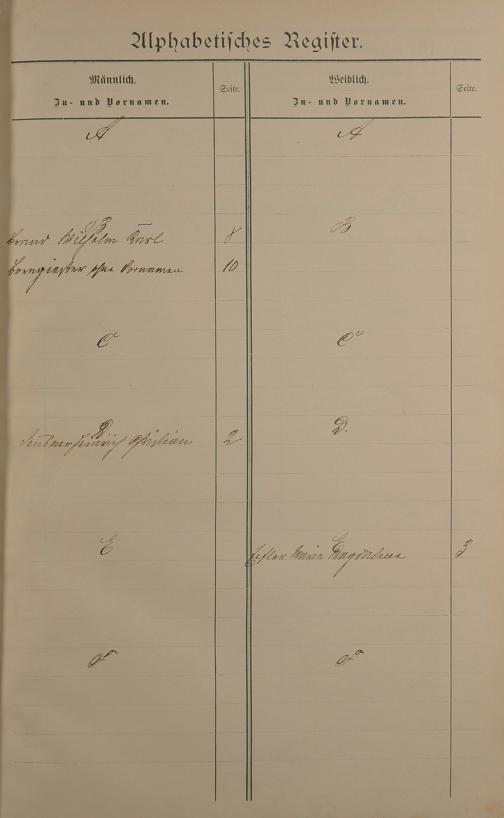 Alphabetisches Register.
Männlich.
Zu- und Vornamen.
Seite.
Weiblich.
Zu- und Vornamen.
Seite.
A
A
B
B
Brand Wilhelm Karl 8
ohne Vornamen 10
C
C
D
D.
Heinrich Christian 2
E
E
Maria Magdalena 3
F
F